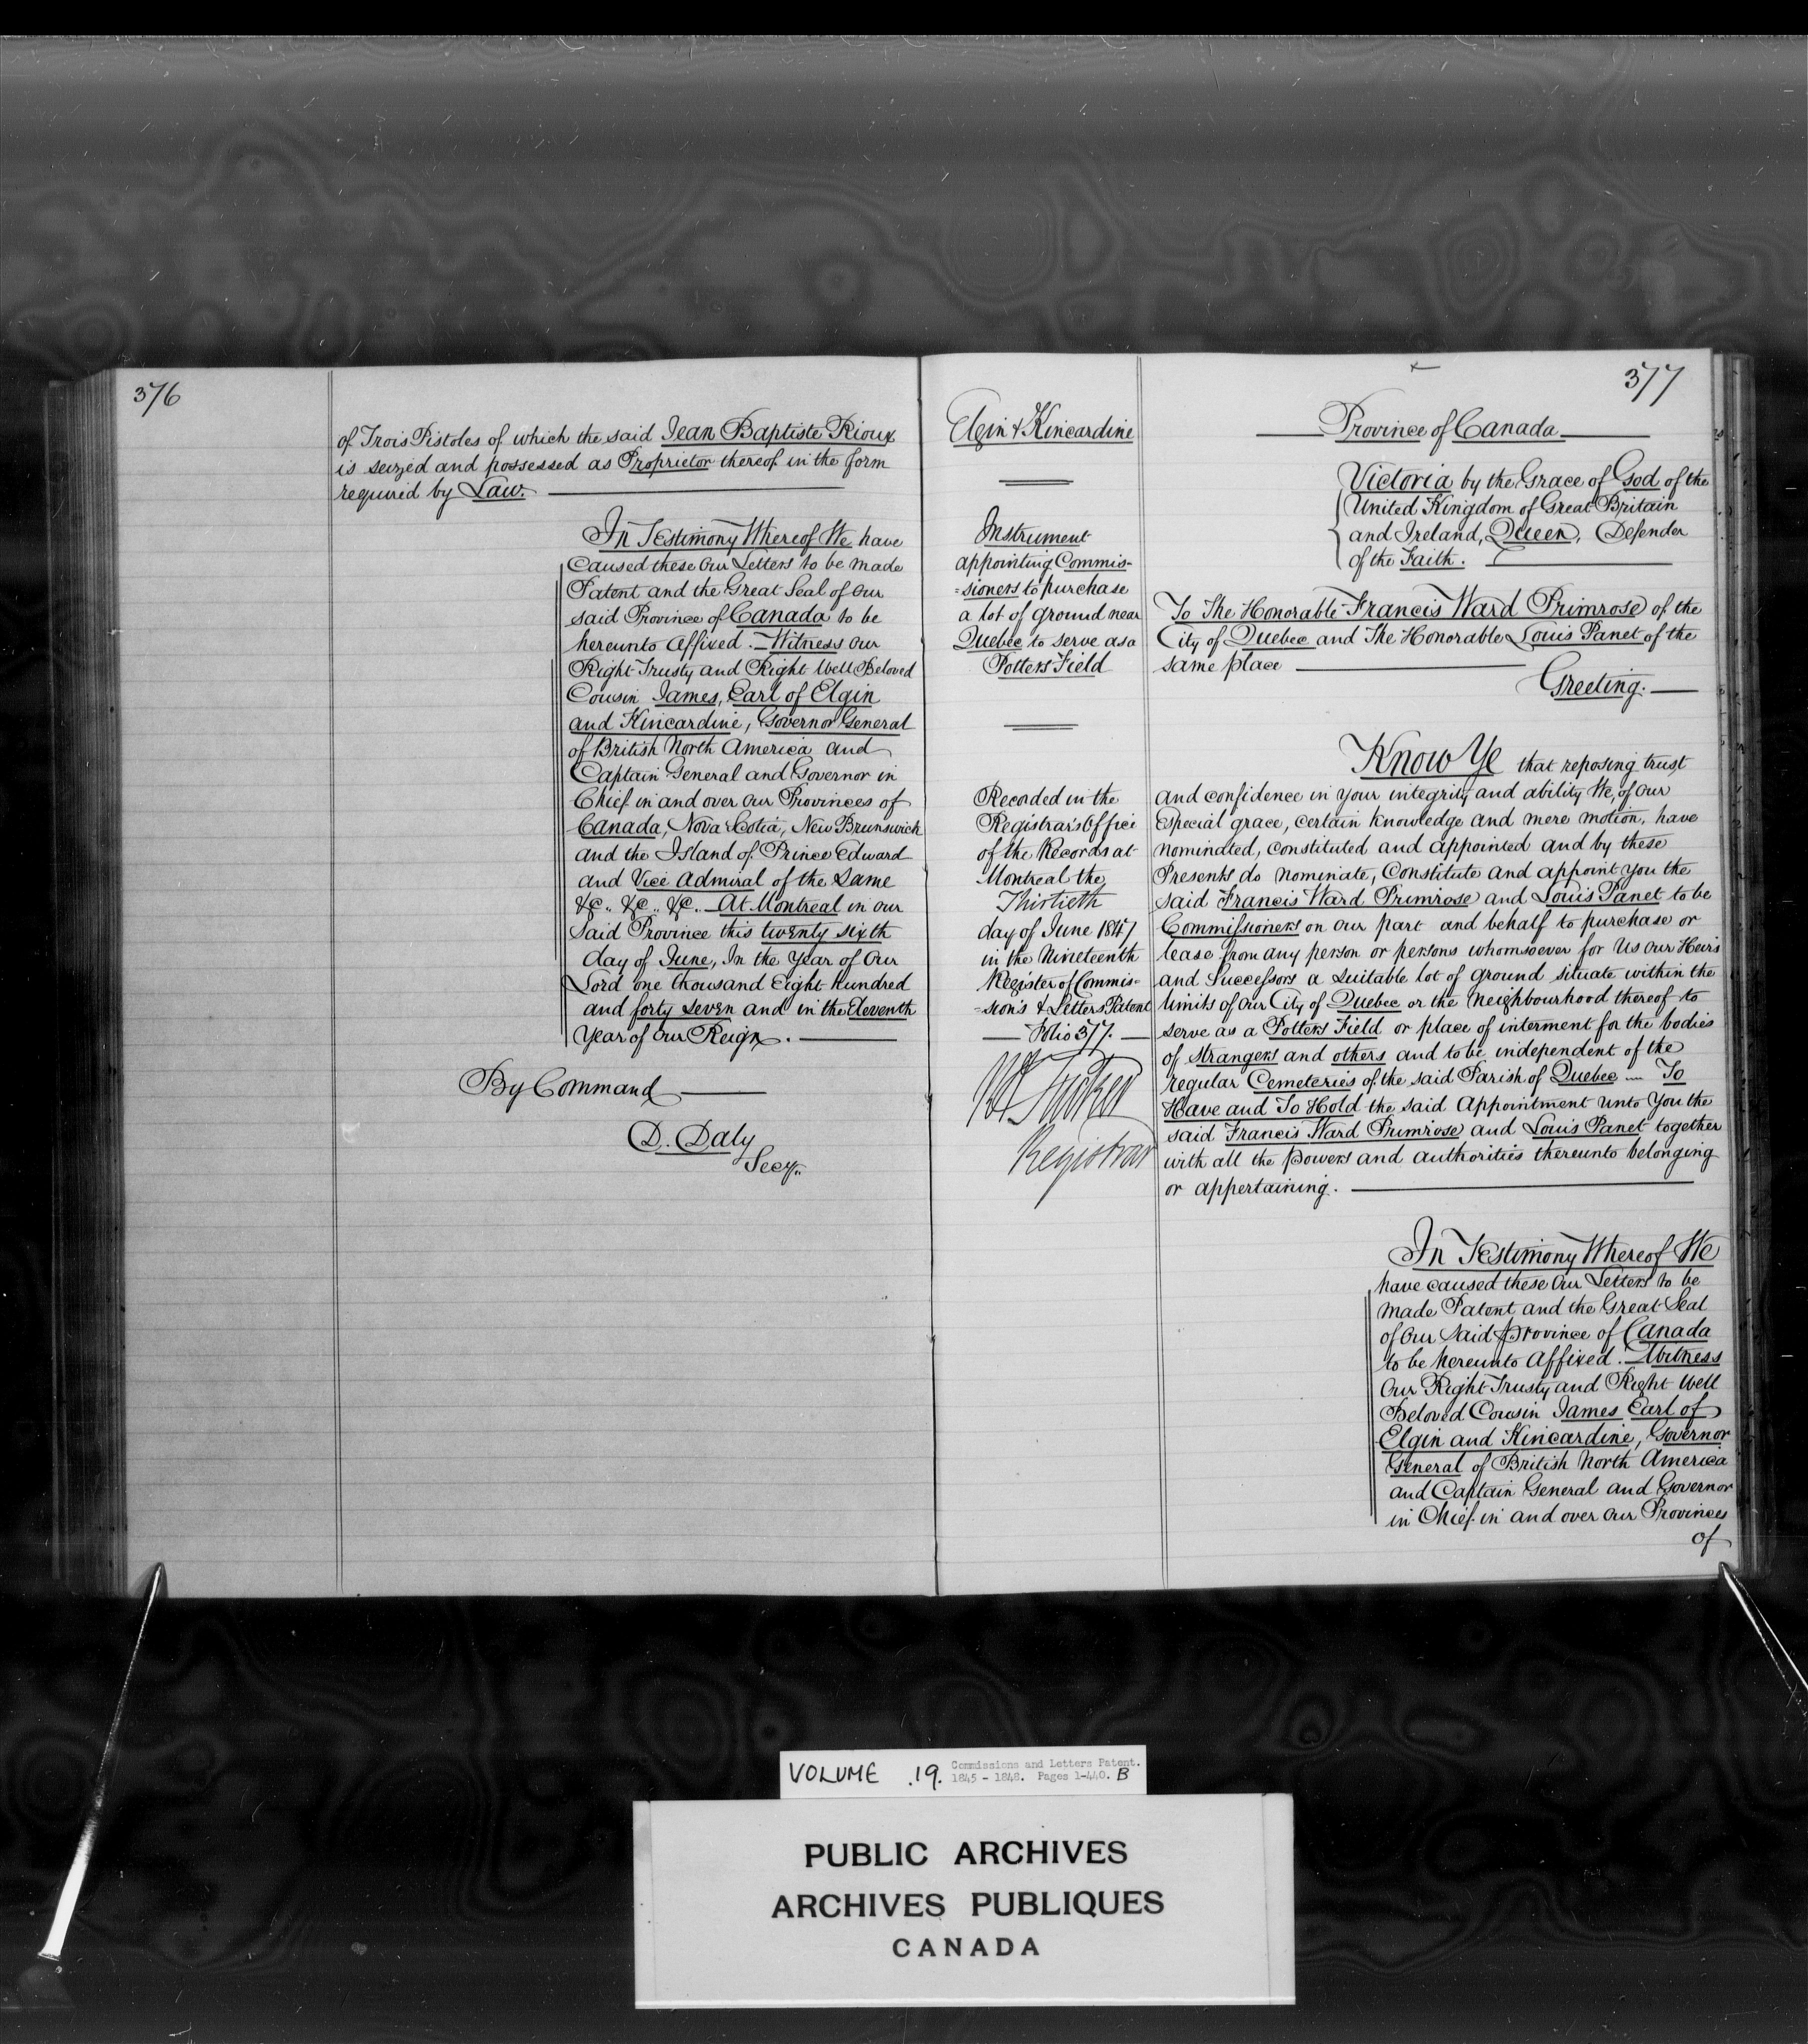 376
of Trois Pistoles of which the said Jean Baptiste Rioux
is seized and possessed as Proprietor thereof in the form
required by Law.
In Testimony Whereof We have
caused these Our Letters to be made
Patent and the Great Seal of Our
said Province of Canada to be
hereunto Affixed. Witness Our
Right Trusty and Right Well Beloved
Cousin James, Earl of Elgin
and Kincardine, Governor General
of British North America and
Captain General and Governor in
Chief in and over Our Provinces of
Canada, Nova Scotia, New Brunswick
and the Island of Prince Edward
and Vice Admiral of the Same
&c. &c. &c. At Montreal in our
said Province this twenty sixth
day of June, In the Year of Our
Lord one thousand Eight hundred
and forty seven and in the Eleventh
Year of Our Reign.
By Command
D. Daly
Secy.
377
Elgin & Kincardine
Instrument
appointing Commis-
=sioners to purchase
a lot of ground near
Quebec to serve as a
Potters Field
Recorded in the
Registrar's Office
of the Records at
Montreal the
Thirtieth
day of June 1847
in the Nineteenth
Register of Commis-
=sions & Letters Patent
Folio 377.
Registrar
Province of Canada
Victoria by the Grace of God of the
United Kingdom of Great Britain
and Ireland, Queen, Defender
of the Faith.
To The Honorable Francis Ward Primrose of the
City of Quebec and The Honorable Louis Panet of the
same place
Greeting.
Know Ye that reposing trust
and confidence in your integrity and ability We, of Our
Especial grace, certain knowledge and mere motion, have
nominated, constituted and appointed and by these
Presents do nominate, Constitute and appoint You the
said Francis Ward Primrose and Louis Panet to be
Commissioners on our part and behalf to purchase or
lease from any person or persons whomsoever for Us Our Heirs
and Successors a suitable lot of ground situate within the
limits of Our City of Quebec or the neighbourhood thereof to
serve as a Potters Field or place of interment for the bodies
of strangers and others and to be independent of the
regular Cemeteries of the said Parish of Quebec — To
Have and To Hold the said Appointment unto You the
said Francis Ward Primrose and Louis Panet together
with all the powers and authorities thereunto belonging
or appertaining.
In Testimony Whereof We
have caused these Our Letters to be
made Patent and the Great Seal
of Our said Province of Canada
to be hereunto Affixed. Witness
Our Right Trusty and Right Well
Beloved Cousin James Earl of
Elgin and Kincardine, Governor
General of British North America
and Captain General and Governor
in Chief in and over Our Provinces
of
VOLUME 19. Commissions and Letters Patent.
1845 - 1848. Pages 1-440. B
PUBLIC ARCHIVES
ARCHIVES PUBLIQUES
CANADA